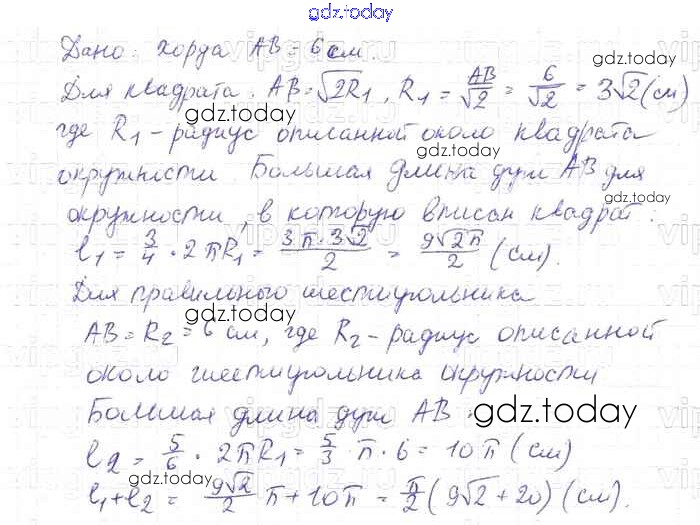 gdz.today
Дано: хорда AB = 6 см.
Для квадрата: AB = √2R₁, R₁ = AB/√2 = 6/√2 = 3√2 (см)
где R₁ – радиус описанной около квадрата
окружности. Большая длина дуги AB для
окружности, в которую вписан квадрат:
l₁ = 3/4 · 2πR₁ = 3π·3√2/2 = 9√2π/2 (см).
Для правильного шестиугольника
AB = R₂ = 6 см, где R₂ – радиус описанной
около шестиугольника окружности
Большая длина дуги AB:
l₂ = 5/6 · 2πR₁ = 5/3 π · 6 = 10π (см)
l₁+l₂ = 9√2/2 π + 10π = π/2 (9√2 + 20) (см).